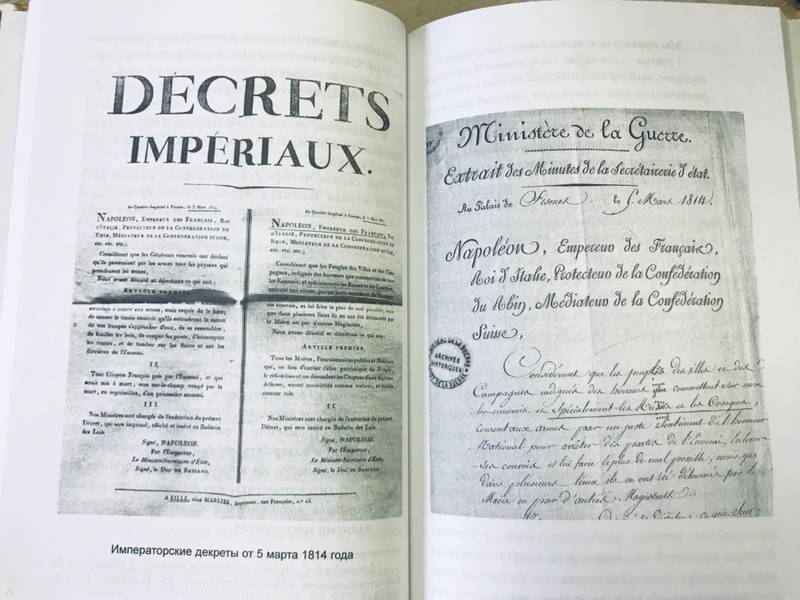 DÉCRETS
IMPÉRIAUX.
Au Quartier-Impérial à Fismes, le 5 Mars 1814.
NAPOLÉON, EMPEREUR DES FRANÇAIS, ROI
D'ITALIE, PROTECTEUR DE LA CONFÉDÉRATION DU
RHIN, MÉDIATEUR DE LA CONFÉDÉRATION SUISSE,
etc. etc. etc.;
Considérant que les Généraux ennemis ont déclaré
qu'ils passeraient par les armes tous les paysans qui
prendraient les armes,
Nous avons décrété et décrétons ce qui suit:
ARTICLE PREMIER.
autorisés à courir aux armes, mais requis de le faire;
de sonner le tocsin aussitôt qu'ils entendront le canon
de nos troupes s'approcher d'eux, de se rassembler,
de fouiller les bois, de couper les ponts, d'intercepter
les routes, et de tomber sur les flancs et sur les
derrières de l'Ennemi.
II
Tout Citoyen Français pris par l'Ennemi, et qui
serait mis à mort, sera sur-le-champ vengé par la
mort, en représailles, d'un prisonnier ennemi.
III
Nos Ministres sont chargés de l'exécution du présent
Décret, qui sera imprimé, affiché et inséré au Bulletin
des Lois
Signé, NAPOLÉON.
Par l'Empereur,
Le Ministre-Secrétaire d'État,
Signé, LE DUC DE BASSANO.
Au Quartier-Impérial à Fismes, le 5 Mars 1814.
NAPOLÉON, EMPEREUR DES FRANÇAIS, ROI
D'ITALIE, PROTECTEUR DE LA CONFÉDÉRATION DU
RHIN, MÉDIATEUR DE LA CONFÉDÉRATION SUISSE,
etc. etc. etc.
Considérant que les Peuples des Villes et des Cam-
pagnes, indignés des horreurs que commettent sur eux
les Ennemis, et spécialement les Russes et les Cosaques,
courent aux armes, par un juste sentiment de l'honneur
les convois, et lui faire le plus de mal possible, mais
que dans plusieurs lieux ils en ont été détournés par
le Maire ou par d'autres Magistrats,
Nous avons décrété et décrétons ce qui suit:
ARTICLE PREMIER.
Tous les Maires, Fonctionnaires publics et Habitans
qui, au lieu d'exciter l'élan patriotique du Peuple,
le refroidissent ou dissuadent les Citoyens d'une légitime
défense, seront considérés comme traîtres, et traités
comme tels.
II
Nos Ministres sont chargés de l'exécution du présent
Décret, qui sera imprimé, affiché et inséré au Bulletin
des Lois.
Signé, NAPOLÉON.
Par l'Empereur,
Le Ministre-Secrétaire d'État,
Signé, LE DUC DE BASSANO.
A LILLE, chez MARLIER, Imprimeur, rue Française, n.° 28.
Императорские декреты от 5 марта 1814 года
Ministère de la Guerre.
Extrait des Minutes de la Secrétairerie d'état.
Au Palais de Fismes le 5 Mars 1814.
Napoléon, Empereur des Français,
Roi d'Italie, Protecteur de la Confédération
du Rhin, Médiateur de la Confédération
Suisse,
ARCHIVES
HISTORIQUES
DE LA GUERRE
Considérant que les peuples des villes et des
Campagnes indignés des horreurs que commettent sur eux
les ennemis et Spécialement les Russes et les Cosaques,
courent aux armes par un juste sentiment de l'honneur
National pour arrêter des partis de l'Ennemi, enlever
ses convois et lui faire le plus de mal possible, mais que
dans plusieurs lieux ils en ont été détournés par le
Maire ou par d'autres Magistrats